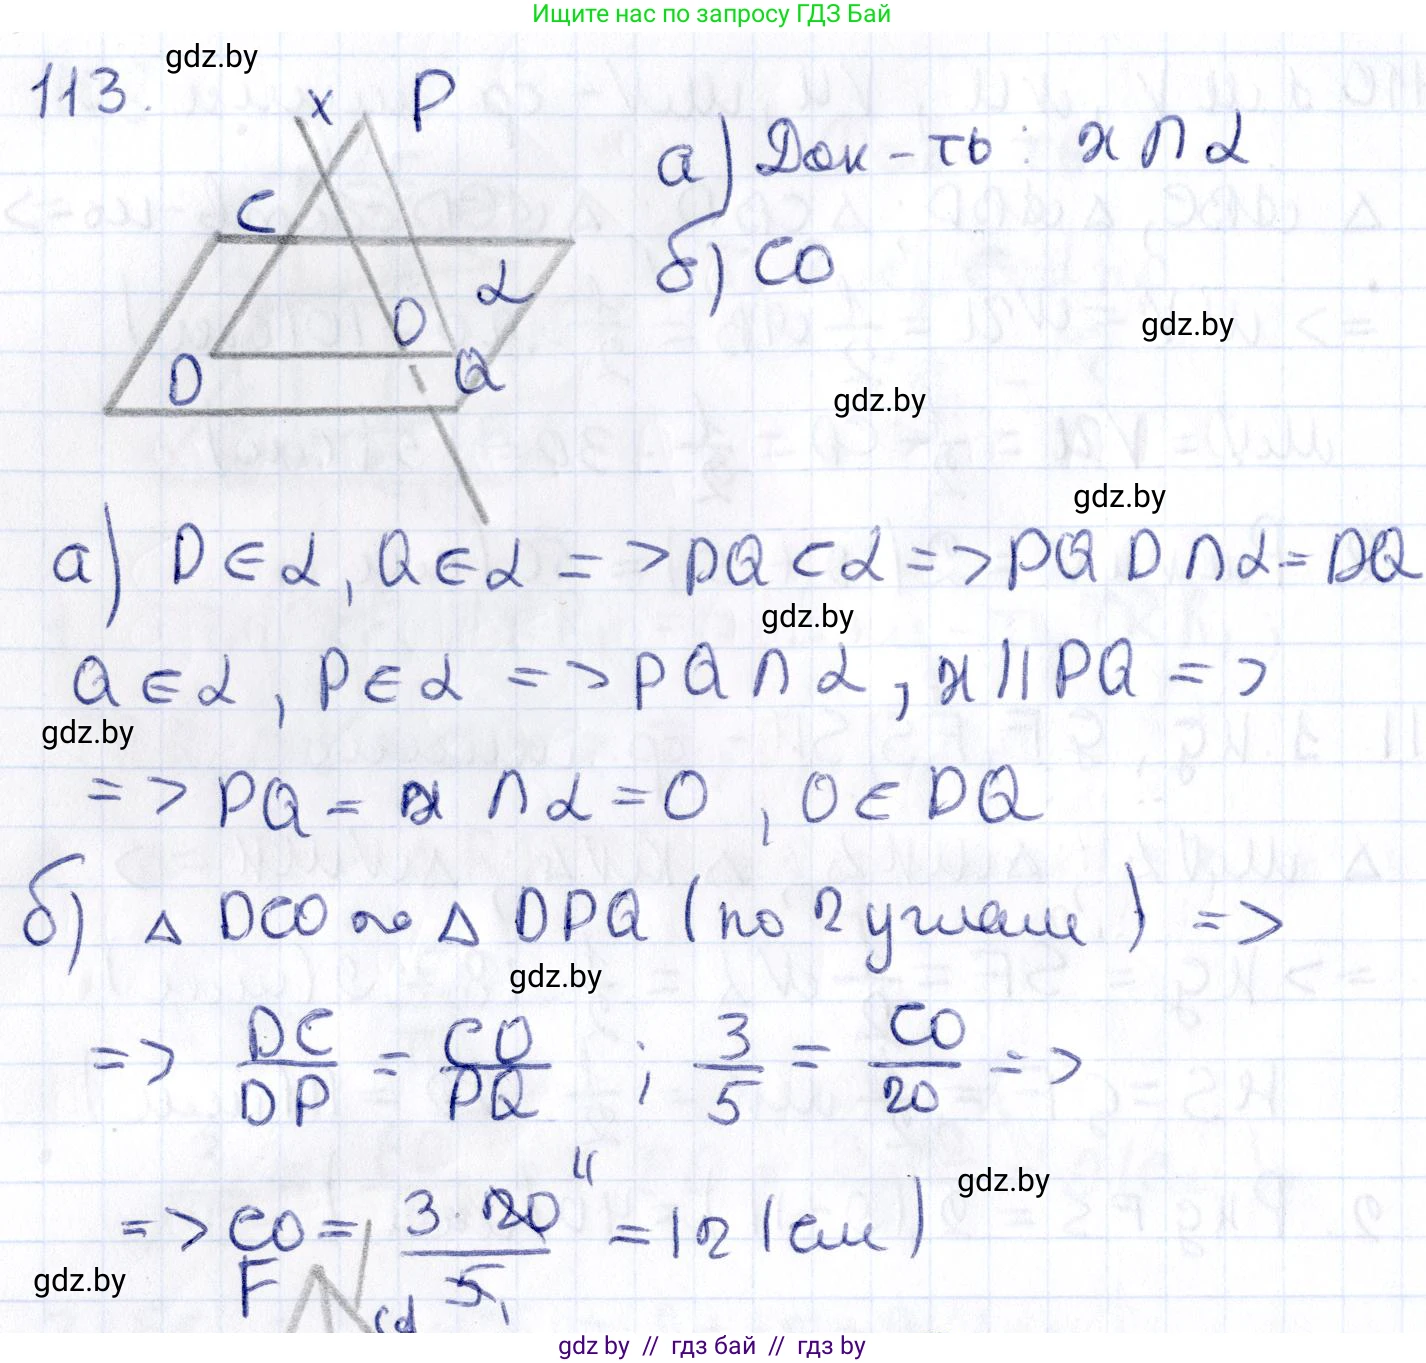 Ищите нас по запросу ГДЗ Бай
gdz.by
113.
x P
C
α
O
D Q
а) Док-ть: x ∩ α
б) CO
gdz.by
gdz.by
gdz.by
а) D ∈ α, Q ∈ α => DQ ⊂ α => PQD ∩ α = DQ
gdz.by
Q ∈ α, P ∈ α => PQ ∩ α, x || PQ =>
gdz.by
=> PQ = x ∩ α = O, O ∈ DQ
б) Δ DCO ~ Δ DPQ (по 2 углам) =>
gdz.by
=> DC/DP = CO/PQ ; 3/5 = CO/20 =>
gdz.by
=> CO = 3·20 4/5 1 = 12 (см)
gdz.by
F
gdz.by // гдз бай // гдз by